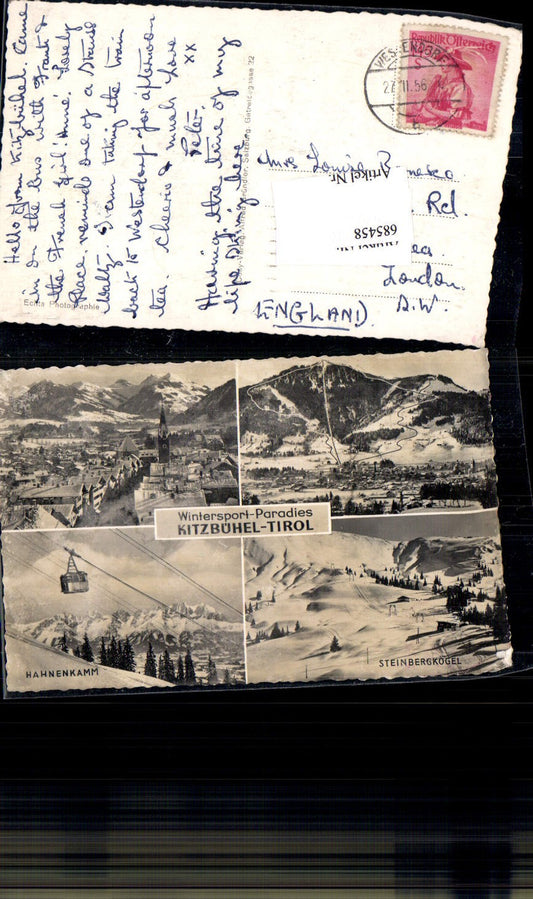 Hello from Kitzbühel. Came
in on the bus with Frank &
the French girl 'Anne'. Lovely
Place, reminds one of a Strauss
Waltz. I am taking the train
back to Westendorf for afternoon
tea. Cheerio & much love
Peter. xx
Having the time of my
life Skiing here
Echte Photographie
Salzburg, Getreidegasse 22
Republik Österreich
WESTENDORF
27.II.56
Louisa
Rd.
London.
S.W.
ENGLAND
Artikel Nr.
685458
Wintersport-Paradies
KITZBÜHEL-TIROL
HAHNENKAMM
STEINBERGKOGEL